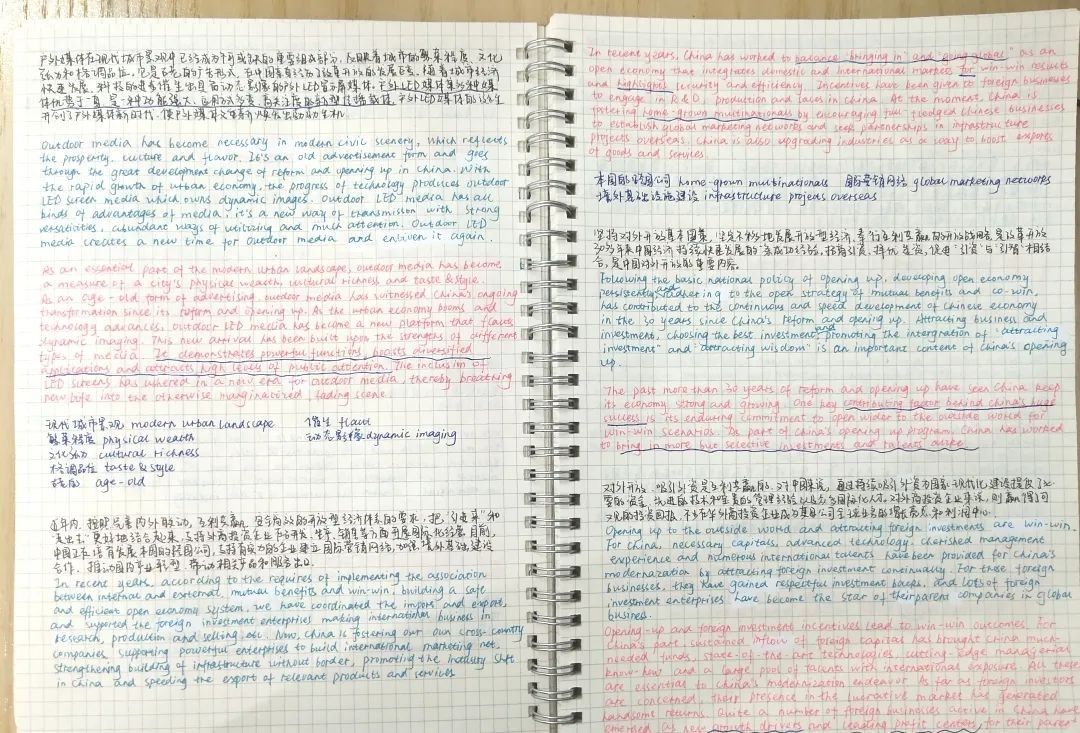 户外媒体在现代城市景观中已经成为不可或缺的重要组成部分,反映着城市的繁荣程度、文化
活力和格调品位。它是古老的广告形式,在中国有着经历了改革开放的发展巨变。随着城市经济
快速发展,科技的进步催生出具有动态影像的户外LED
Outdoor media has become necessary in modern civic scenery, which reflects
the prosperity, culture and flavor. It's an old advertisement form and goes
through the great development change of reform and opening up in China. With
the rapid growth of urban economy, the progress of technology produces outdoor
LED screen media which owns dynamic images. Outdoor LED media has all
kinds of advantages of media; it's a new way of transmisson with strong
versatilities, abundant ways of utilizing and much attention. Outdoor LED
media creates a new time for Outdoor media and enliven it again.
As an essential part of the modern urban landscape, outdoor media has become
a measure of a city's physical wealth, cultural richness and taste & style.
As an age-old form of advertising, outdoor media has witnessed China's ongoing
transformation since its reform and opening up. As the urban economy booms and
technology advances, outdoor LED media has become a new platform that flaunts
dynamic imaging. This new arrival has been built upon the strengths of different
types of media. It demonstrates powerful functions, boasts diversified
applications and attracts high levels of public attention. The inclusion of
LED screens has ushered in a new era for outdoor media, thereby breathing
new life into the otherwise marginalized, fading scene.
现代城市景观 modern urban landscape 催生
繁荣程度 physical wealth 动态影像 dynamic imaging
文化活力 cultural richness
格调品位 taste & style
古老的 age-old
近年内,按照完善内外联动、互利共赢、安全高效的开放型经济体系的要求,把“引进来”和
“走出去”更好地结合起来,支持外商投资企业在研发、生产、销售等方面开展国际化经营。目前,
中国正在培育发展本国的跨国公司,支持有实力的企业建立国际营销网络,加强境外基础设施建设
合作,推动国内产业转型,带动相关产品和服务出口。
In recent years, according to the requires of implementing the association
between internal and external, mutual benefits and win-win, building a safe
and efficient open economy system, we have coordinated the import and export,
and supported the foreign investment enterprises making international business in
research, production and selling etc. Now, China is fostering our own cross-country
companies, supporting powerful enterprises to build international marketing net,
strengthening building of infrastructure without border, promoting the industry shift
in China and speeding the export of relevant products and services
In recent years, China has worked to balance "bringing in" and "going global" as an
open economy that integrates domestic and international markets for win-win results
and highlights security and efficiency. Incentives have been given to foreign businesses
to engage in R&D, production and sales in China. At the moment, China is
fostering home-grown multinationals by encouraging full fledged Chinese businesses
to establish global marketing networks and seek partnerships in infrastructure
projects overseas. China is also upgrading industries as a way to boost exports
of goods and services.
本国的跨国公司 home-grown multinationals 国际营销网络 global marketing networks
境外基础设施建设 infrastructure projects overseas
坚持对外开放基本国策,坚定不移地发展开放型经济、奉行互利共赢的开放战略,是改革开放
30多年来中国经济持续快速发展的一条成功经验。招商引资,择优选资,促进“引资”与“引智”相结
合,是中国对外开放的重要内容。
Following the basic national policy of opening up, developing open economy
persistently and adhering to the open strategy of mutual benefits and co-win,
has contributed to the continuous and speed development of Chinese economy
in the 30 years since China's reform and opening up. Attracting business and
investment, choosing the best investment, and promoting the intergnation of "attracting
investment" and "attracting wisdom" is an important content of China's opening
up.
The past more than 30 years of reform and opening up have seen China keep
its economy strong and growing. One key contributing factor behind China's huge
success is its enduring commitment to open wider to the outside world for
win-win scenarios. As part of China's opening up program, China has worked
to bring in more but selective investments and talents alike.
对外开放、吸引外资是互利共赢的。对中国来说,通过持续吸引外资为国家现代化建设提供了必
要的资金、先进的技术和宝贵的管理经验以及众多国际化人才。对外商投资企业来说,则赢得了可
观的投资回报,不少外商投资企业成为其母公司全球业务的增长亮点和利润中心。
Opening up to the outside world and attracting foreign investments are win-win.
For China, necessary capitals, advanced technology, cherished management
experience and numerous international talents have been provided for China's
modernazation by attracting foreign investment continually. For these foreign
businesses, they have gained respectful investment backs, and lots of foreign
investment enterprises have become the star of their parent companies in global
business.
Opening-up and foreign investment incentives lead to win-win outcomes. For
China's part, sustained inflow of foreign capital has brought China much-
needed funds, state-of-the-art technologies, cutting-edge managerial
know-how and a large pool of talents with international exposure. All these
are essential to China's modernization endeavor. As far as foreign investors
are concerned, their presence in the lucrative market has generated
handsome returns. Quite a number of foreign businesses active in China have
emerged as new growth drivers and leading profit centers for their parent